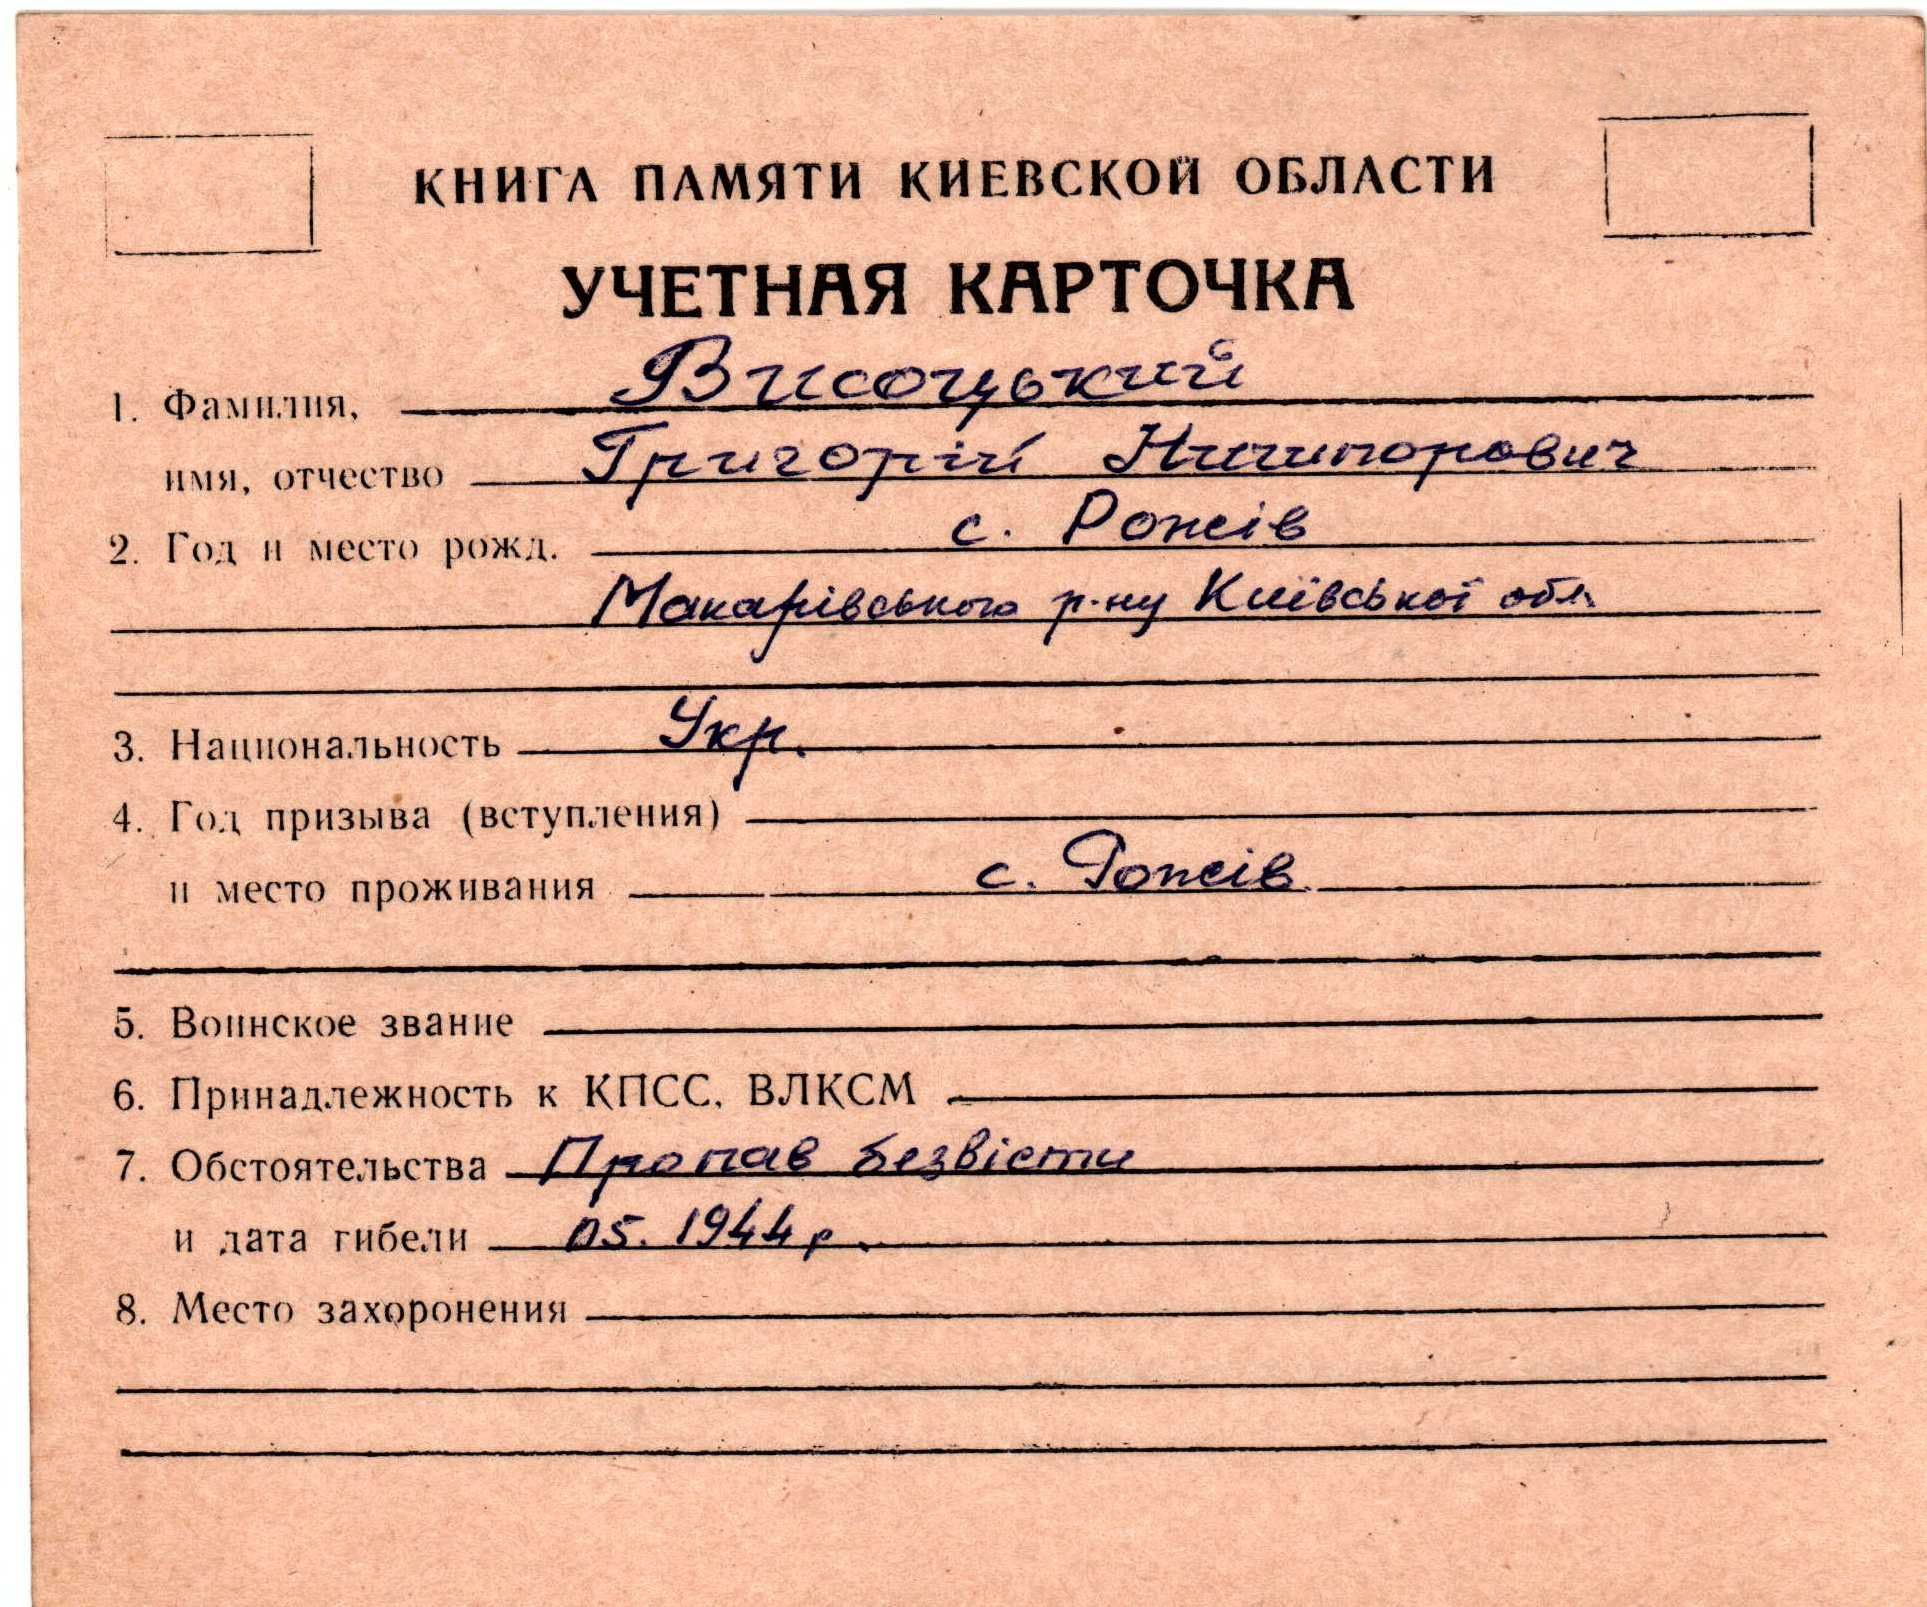 КНИГА ПАМЯТИ КИЕВСКОЙ ОБЛАСТИ
УЧЕТНАЯ КАРТОЧКА
1. Фамилия, Висоцький
имя, отчество Григорій Ничипорович
2. Год и место рожд. с. Рожів
Макарівського р-ну Київської обл.
3. Национальность Укр.
4. Год призыва (вступления)
и место проживания с. Рожів
5. Воинское звание
6. Принадлежность к КПСС, ВЛКСМ
7. Обстоятельства Пропав безвісти
и дата гибели 05. 1944 р.
8. Место захоронения